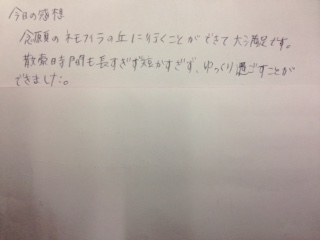 今日の感想
念願のネモフィラの丘に行くことができて大満足です。
散策時間も長すぎず短かすぎず、ゆっくり過ごすことが
できました。